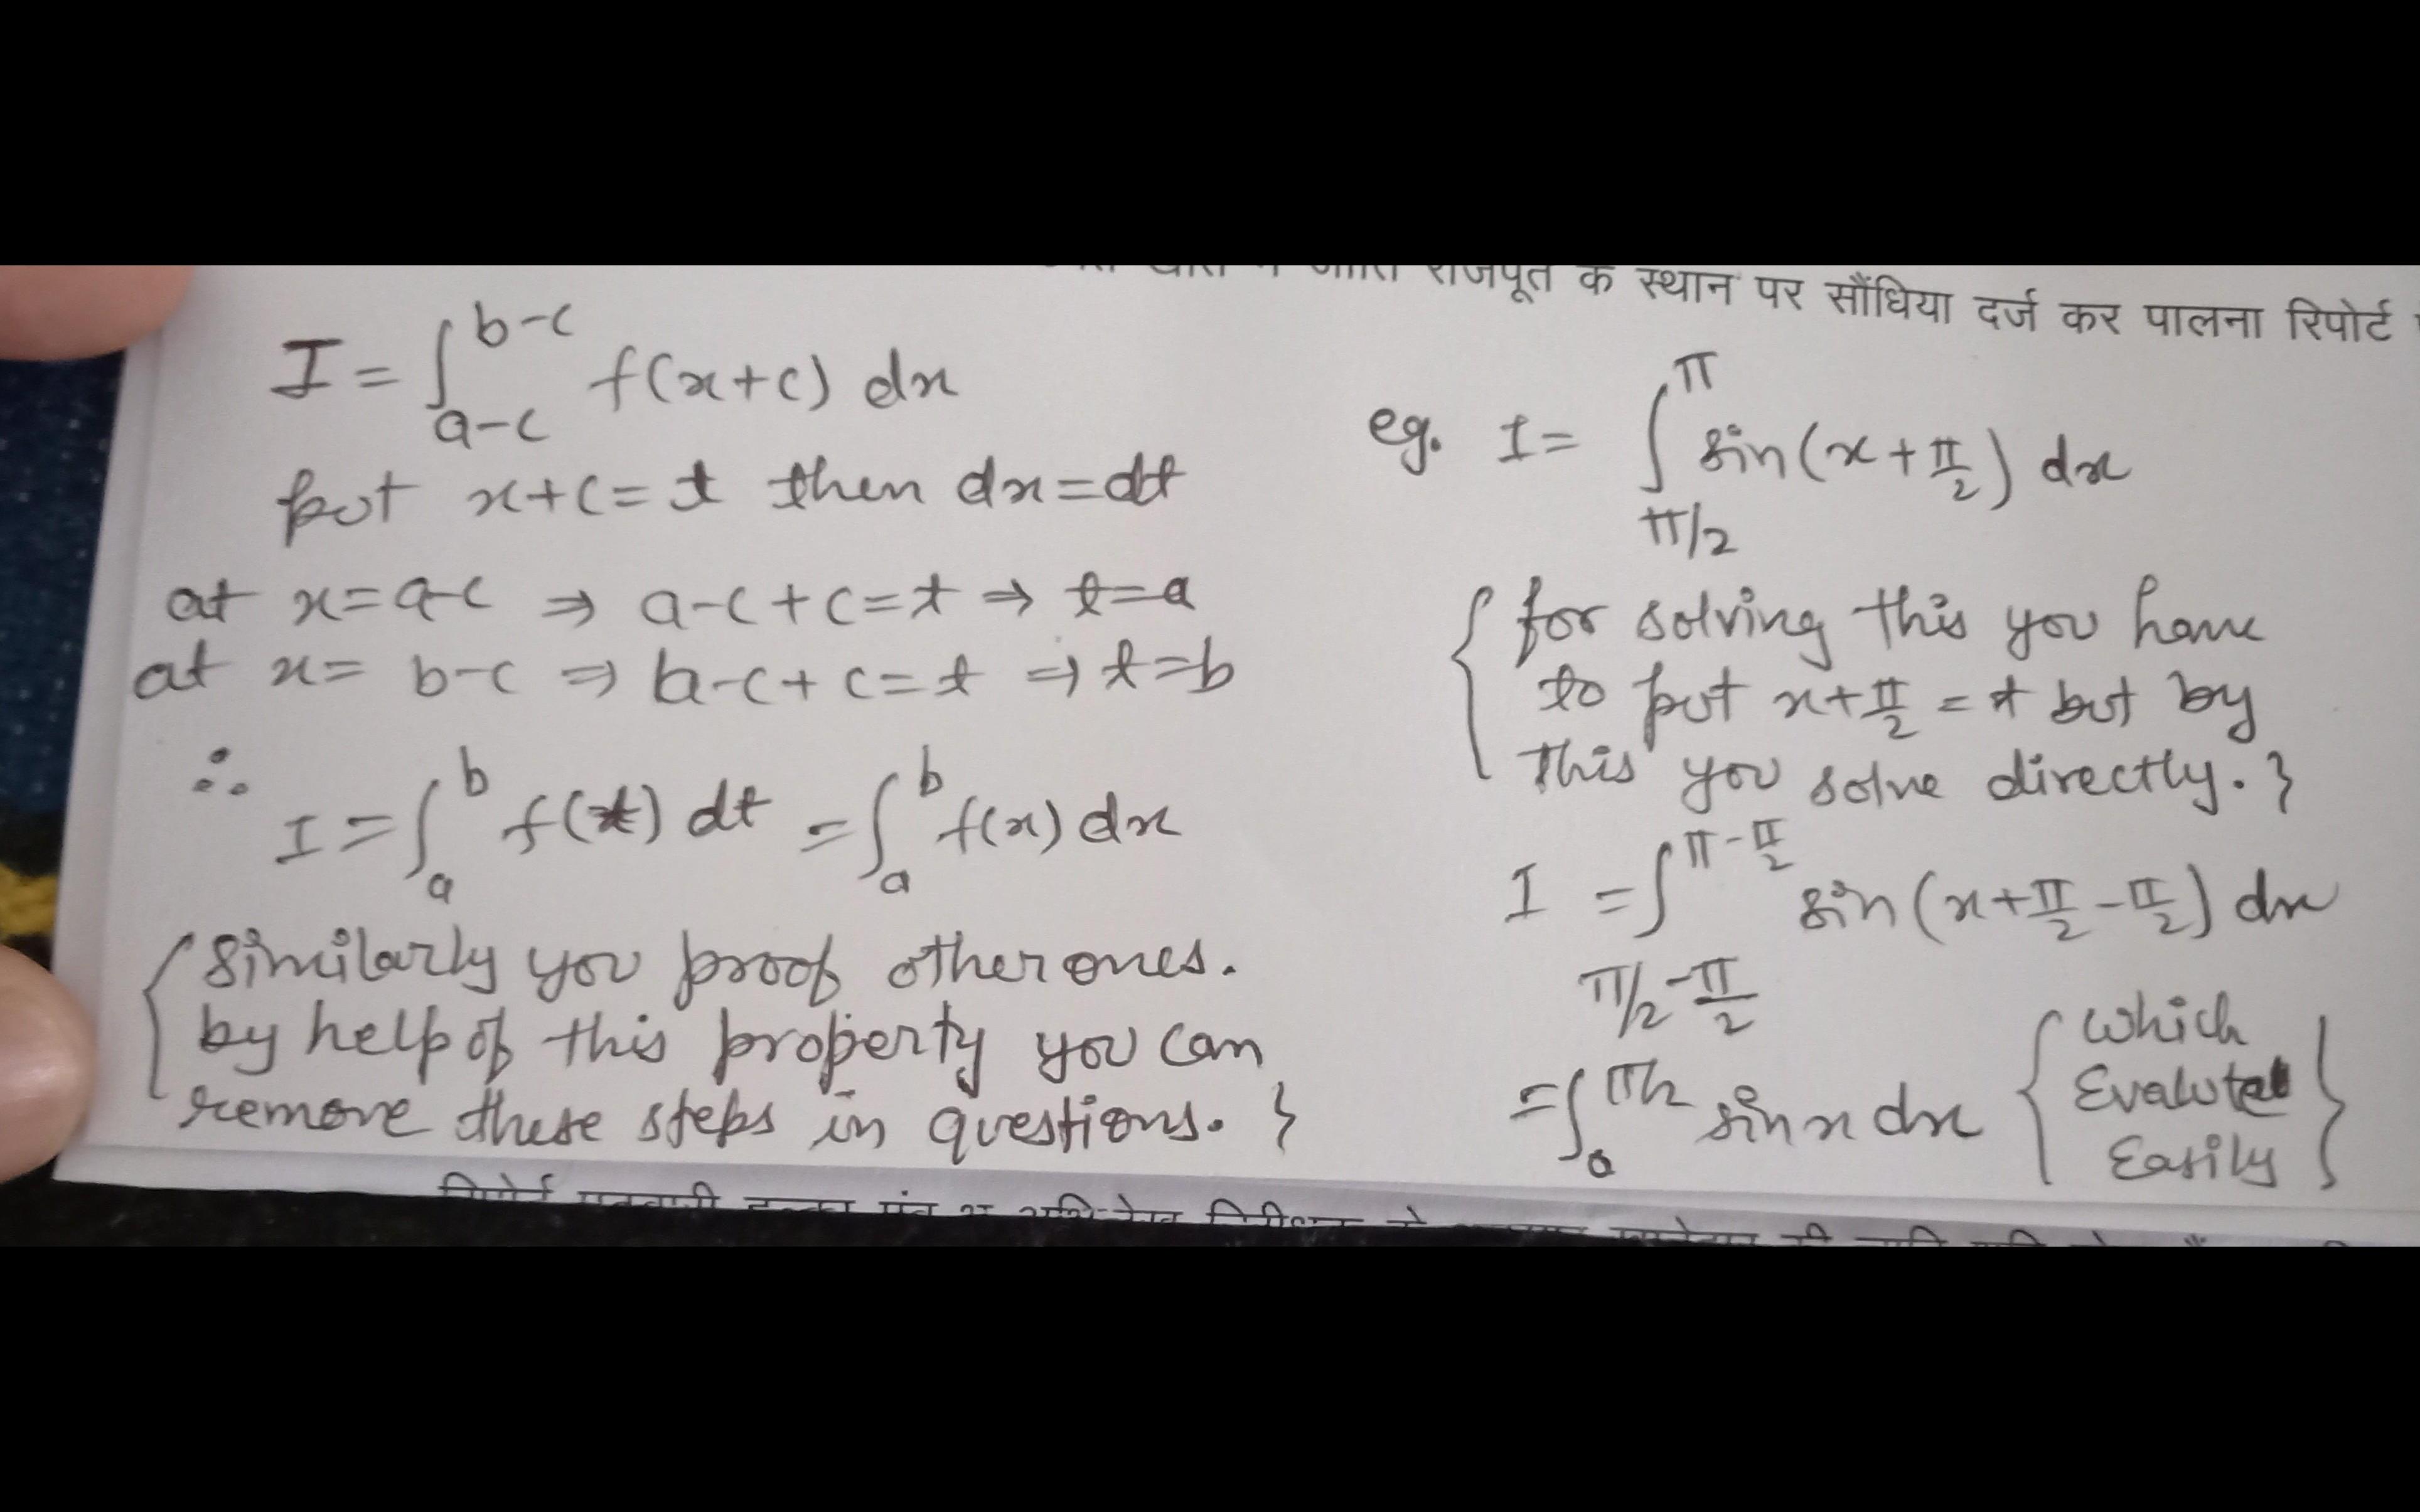 राजपूत के स्थान पर सौंधिया दर्ज कर पालना रिपोर्ट
I = ∫_{a-c}^{b-c} f(x+c) dx
put x+c = t then dx = dt
at x = a-c ⇒ a-c+c = t ⇒ t = a
at x = b-c ⇒ b-c+c = t ⇒ t = b
∴ I = ∫_a^b f(t) dt = ∫_a^b f(x) dx
{ Similarly you proof other ones.
by help of this property you can
remove these steps in questions. }
eg. I = ∫_{π/2}^{π} sin(x + π/2) dx
{ for solving this you have
to put x + π/2 = t but by
this you solve directly. }
I = ∫_{π/2 - π/2}^{π - π/2} sin(x + π/2 - π/2) dx
= ∫_0^{π/2} sin x dx { Which
Evalute
Easily }